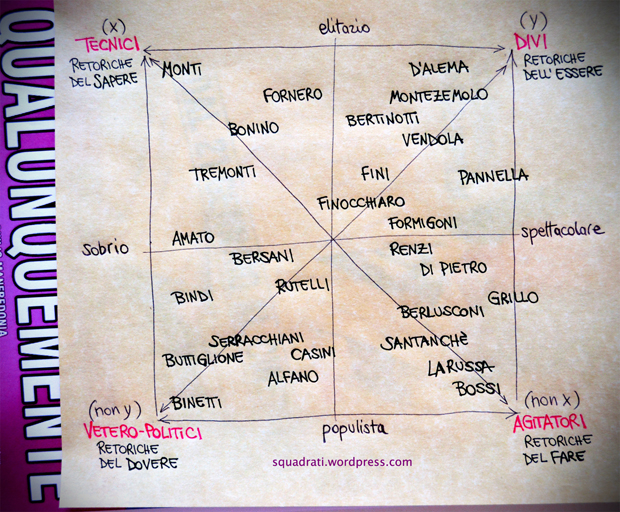 QUALUNQUEMENTE
(x)
TECNICI
RETORICHE
DEL SAPERE
elitazio
(y)
DIVI
RETORICHE
DELL'ESSERE
MONTI
D'ALEMA
FORNERO
MONTEZEMOLO
BERTINOTTI
BONINO
VENDOLA
TREMONTI
FINI
PANNELLA
FINOCCHIARO
FORMIGONI
sobrio
AMATO
spettacolare
BERSANI
RENZI
DI PIETRO
RUTELLI
BINDI
GRILLO
BERLUSCONI
SERRACCHIANI
SANTANCHÈ
BUTTIGLIONE
CASINI
LA RUSSA
ALFANO
BOSSI
BINETTI
(non y)
VETERO-POLITICI
RETORICHE
DEL DOVERE
populista
(non x)
AGITATORI
RETORICHE
DEL FARE
squadrati.wordpress.com